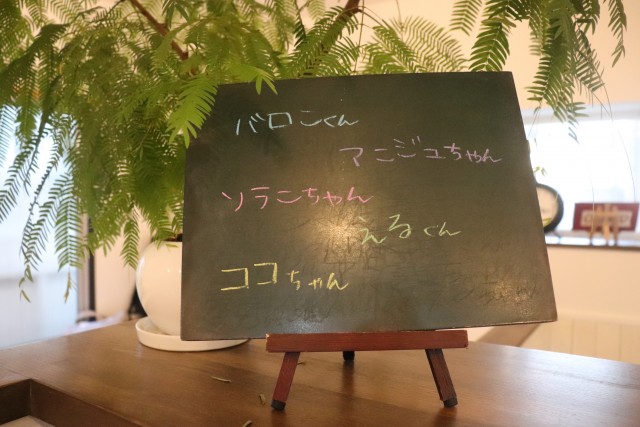 バロンくん
マンジュちゃん
ソランちゃん
えるくん
ココちゃん